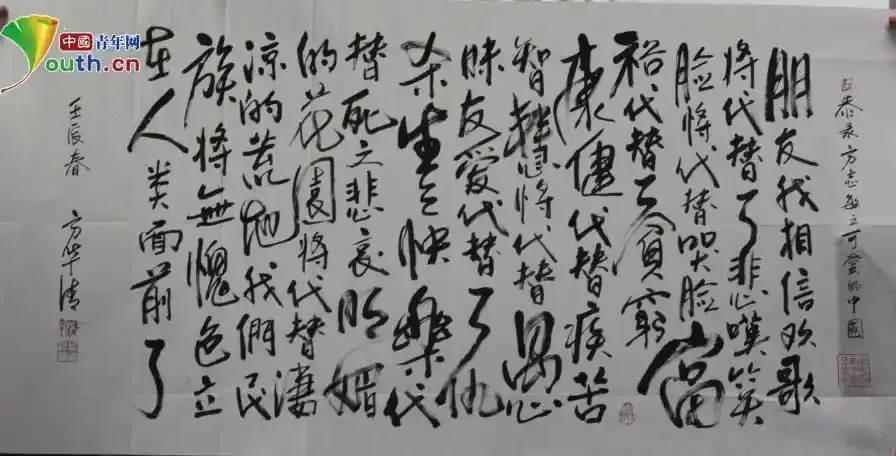 恭录方志敏之可愛的中國
朋友我相信欢歌
将代替了悲嘆笑
脸将代替哭脸富
裕代替了貧窮
康健代替疾苦
智慧将代替愚
昧友愛代替了仇
杀生之快樂代
替死之悲哀明媚
的花園将代替淒
凉的荒地我們民
族将無愧色立
在人类面前了
壬辰春 方华清
中國青年网
Youth.cn